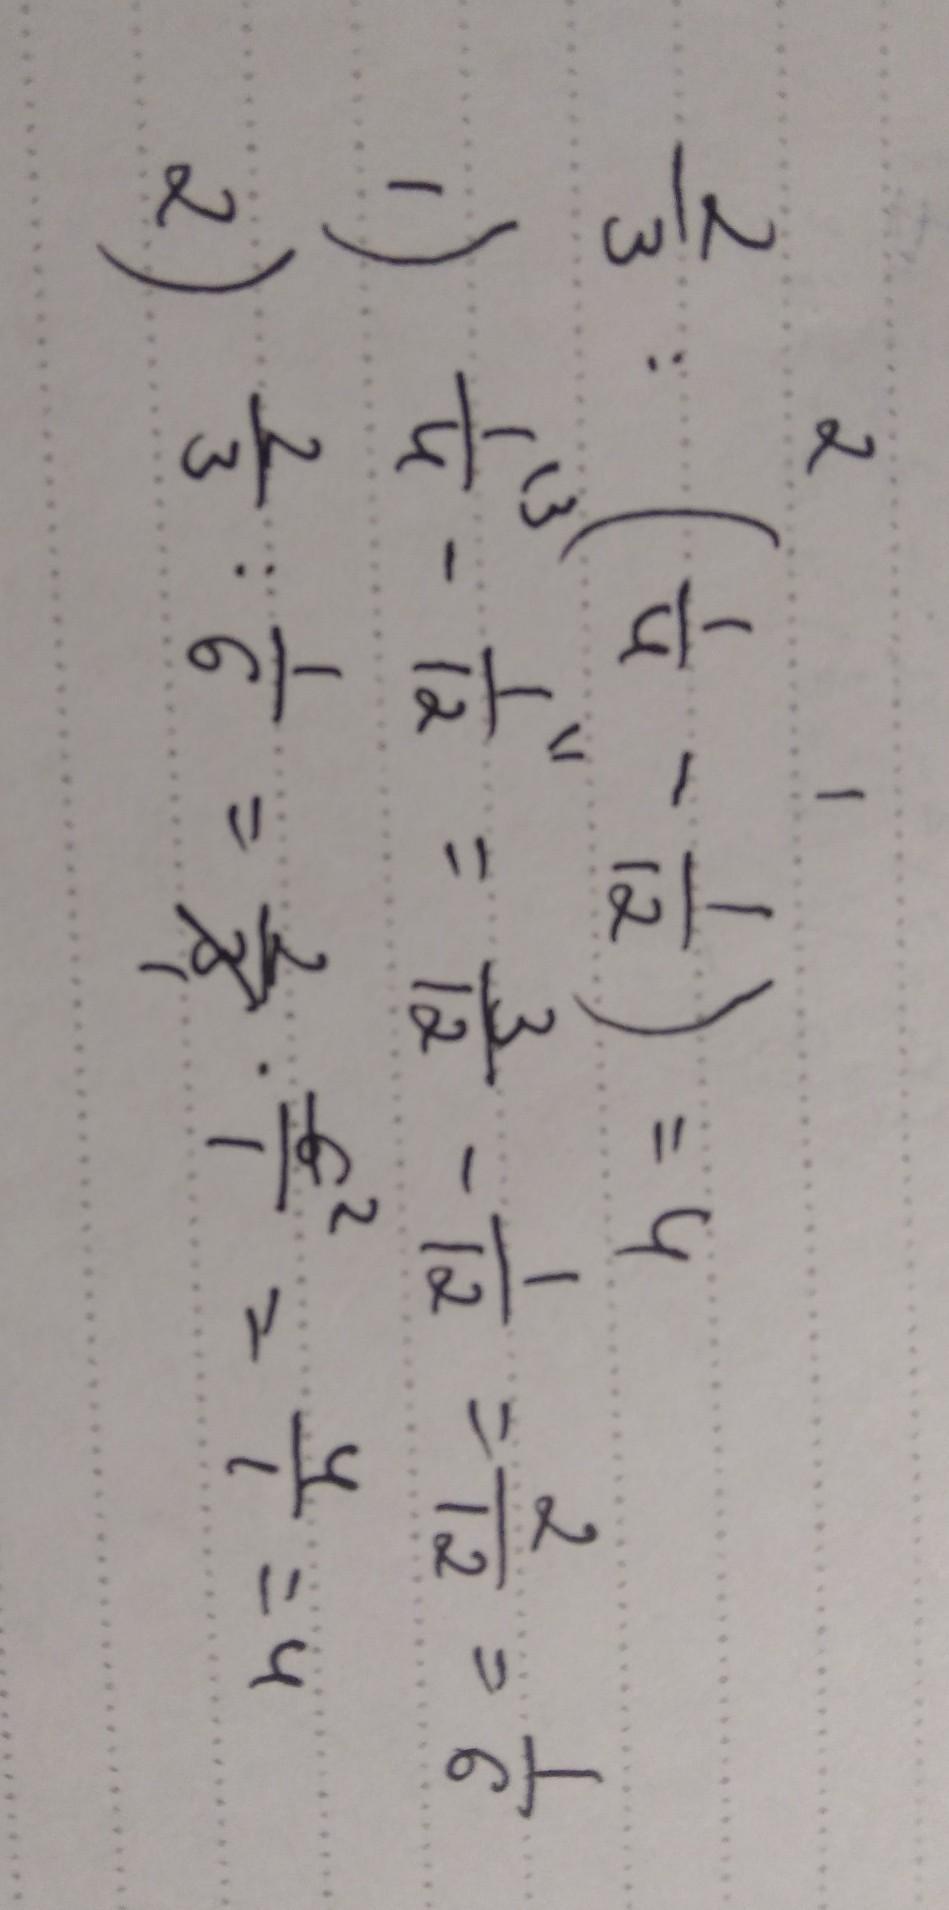 2 1
2/3 : (1/4 - 1/12) = 4
1) 1/4 \3 - 1/12 \1 = 3/12 - 1/12 = 2/12 = 1/6
2) 2/3 : 1/6 = 2/3 1 · 6 2/1 = 4/1 = 4